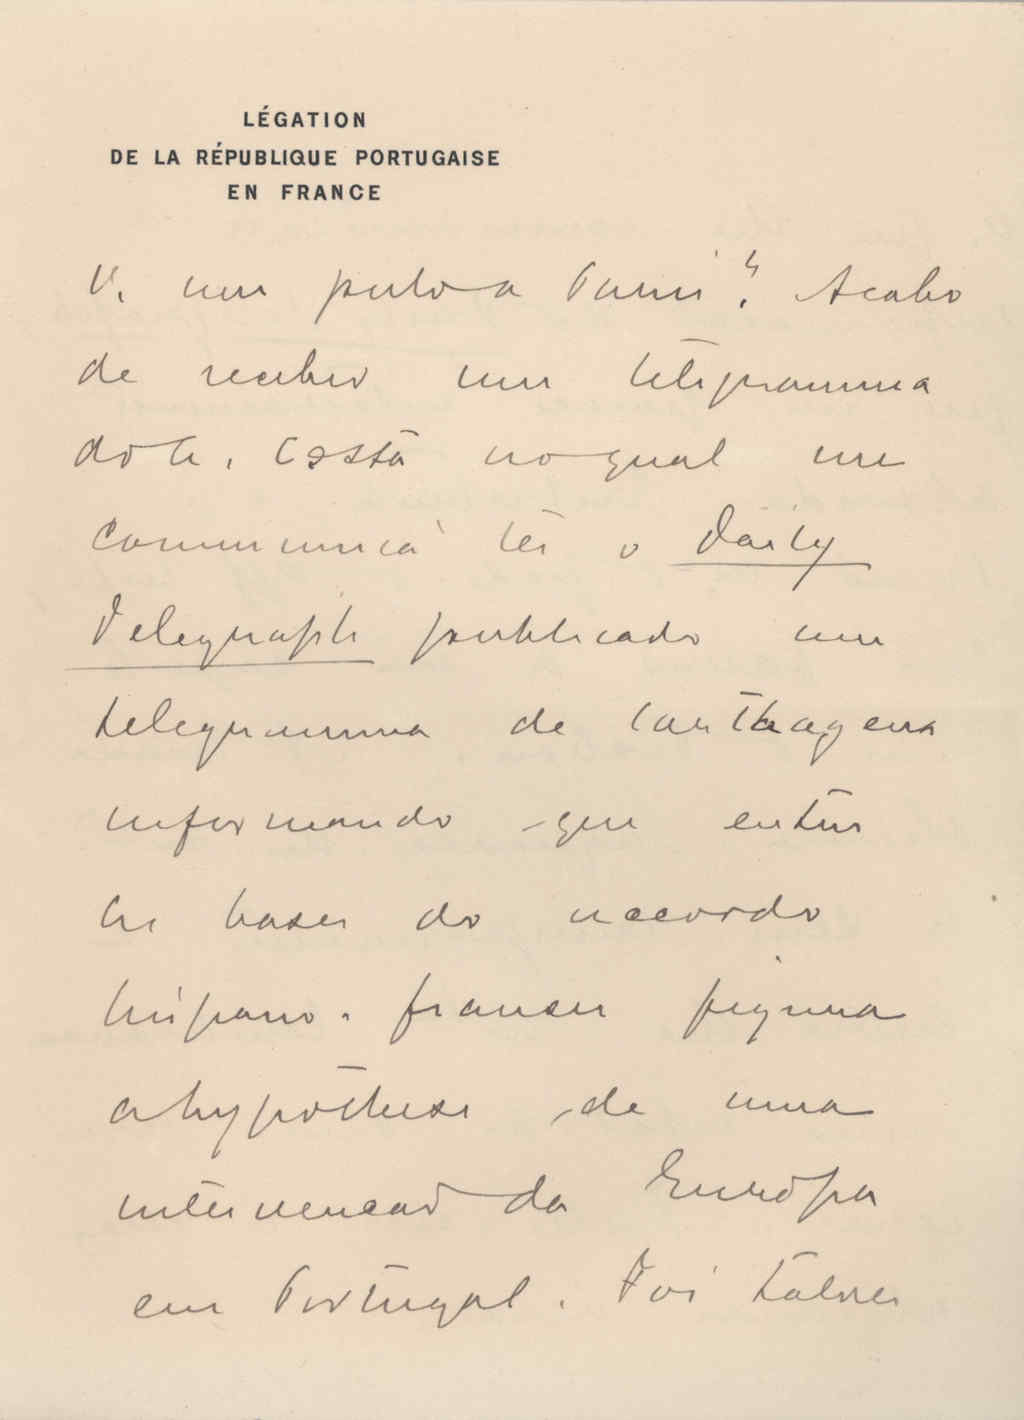 LÉGATION
DE LA RÉPUBLIQUE PORTUGAISE
EN FRANCE
V. um pulo a Paris? Acabo
de receber um telegramma
do A. Costa no qual me
communica ter o Daily
Telegraph publicado um
telegramma de Carthagena
informando que entre
as bases do accordo
hispano-francez figura
a hypothese de uma
intervencao da Europa
em Portugal. Foi talvez